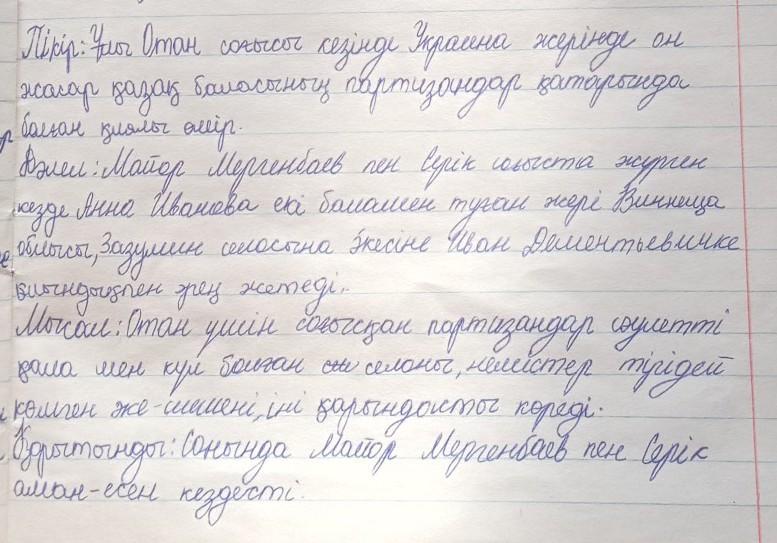 Пікір: Ұлы Отан соғысы кезінде Украина жерінде он
жасар қазақ баласының партизандар қатарында
болған қиялы өмір.
Дәлел: Майор Мергенбаев пен Серік соғыста жүрген
кезде Анна Иванова екі баламен туған жері Винница
облысы, Зазулин селосына әкесіне Иван Дементьевичке
қиындықпен әрең жетеді.
Мысал: Отан үшін соғысқан партизандар сәулетті
қала мен күл болған селоны, немістер тірідей
көмген же-шешені, іні қарындасты көреді.
Қорытынды: Соңында Майор Мергенбаев пен Серік
аман-есен кездесті.